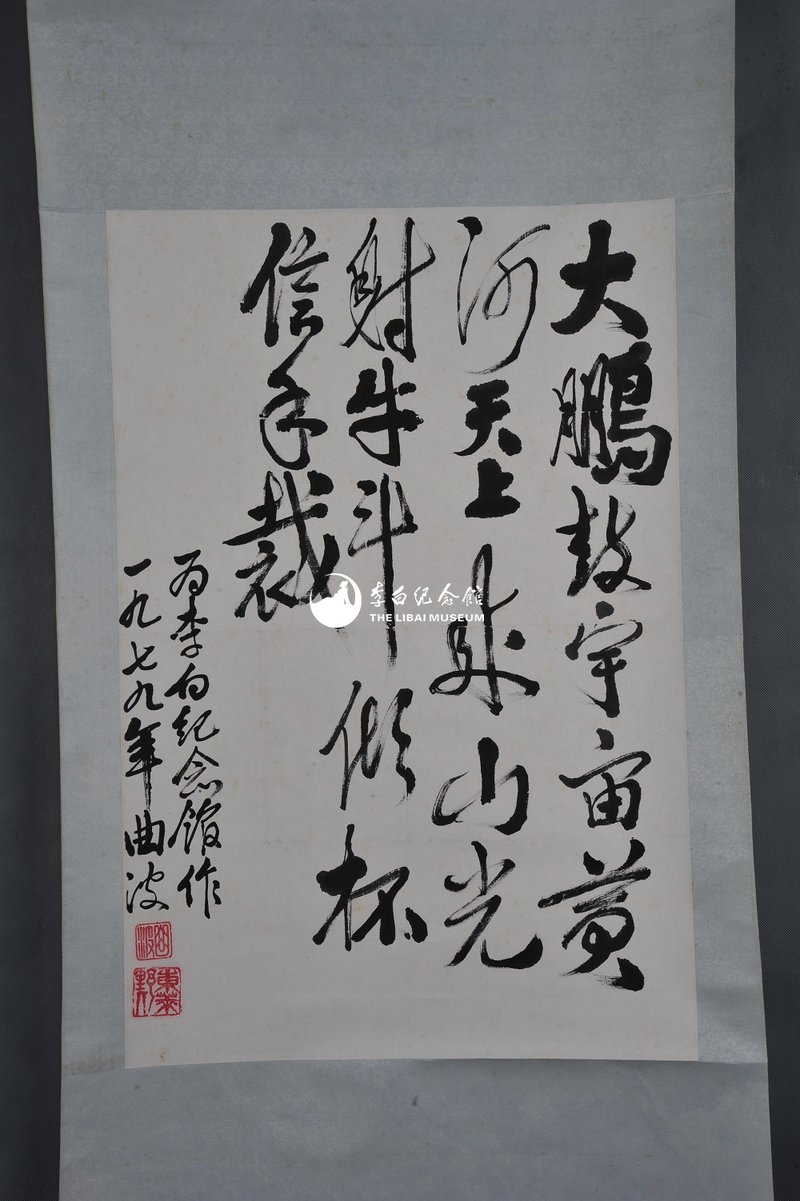 大鹏鼓宇宙黄
河天上来山光
射牛斗倾杯
信手裁
为李白纪念馆作
一九七九年曲波
曲波
東萊
李白纪念馆
THE LIBAI MUSEUM